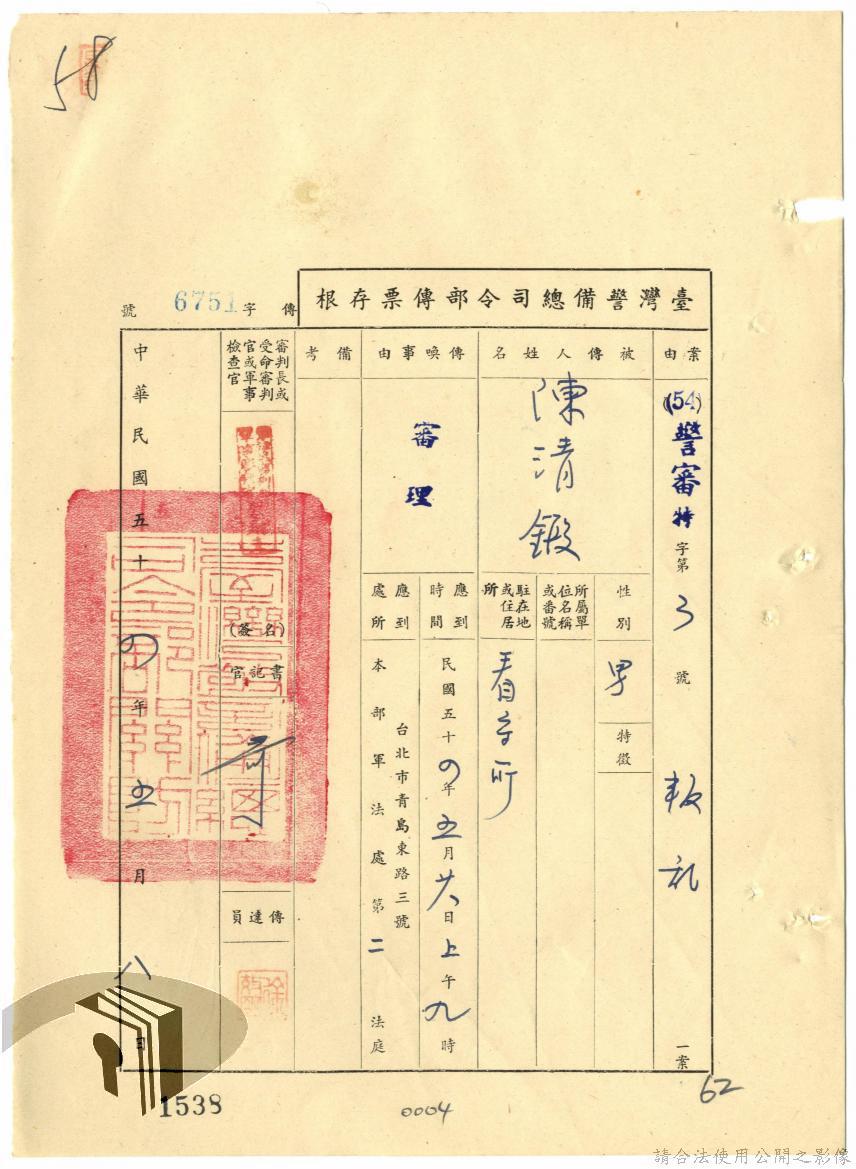 58
臺灣警備總司令部傳票存根
傳字 6751 號
案由
(54)警審特字第3號 叛乱 一案
被傳人姓名
陳清鍛
性別
男
特徵
所屬單位名稱或番號
駐在地或住居所
看守所
傳喚事由
審理
應到時間
民國五十四年五月廿八日上午九時
應到處所
台北市青島東路三號
本部軍法處第二法庭
備考
審判長或受命審判官或軍事檢查官
(簽名)
書記官
傳達員
中華民國五十四年五月八日
1538
0004
62
請合法使用公開之影像